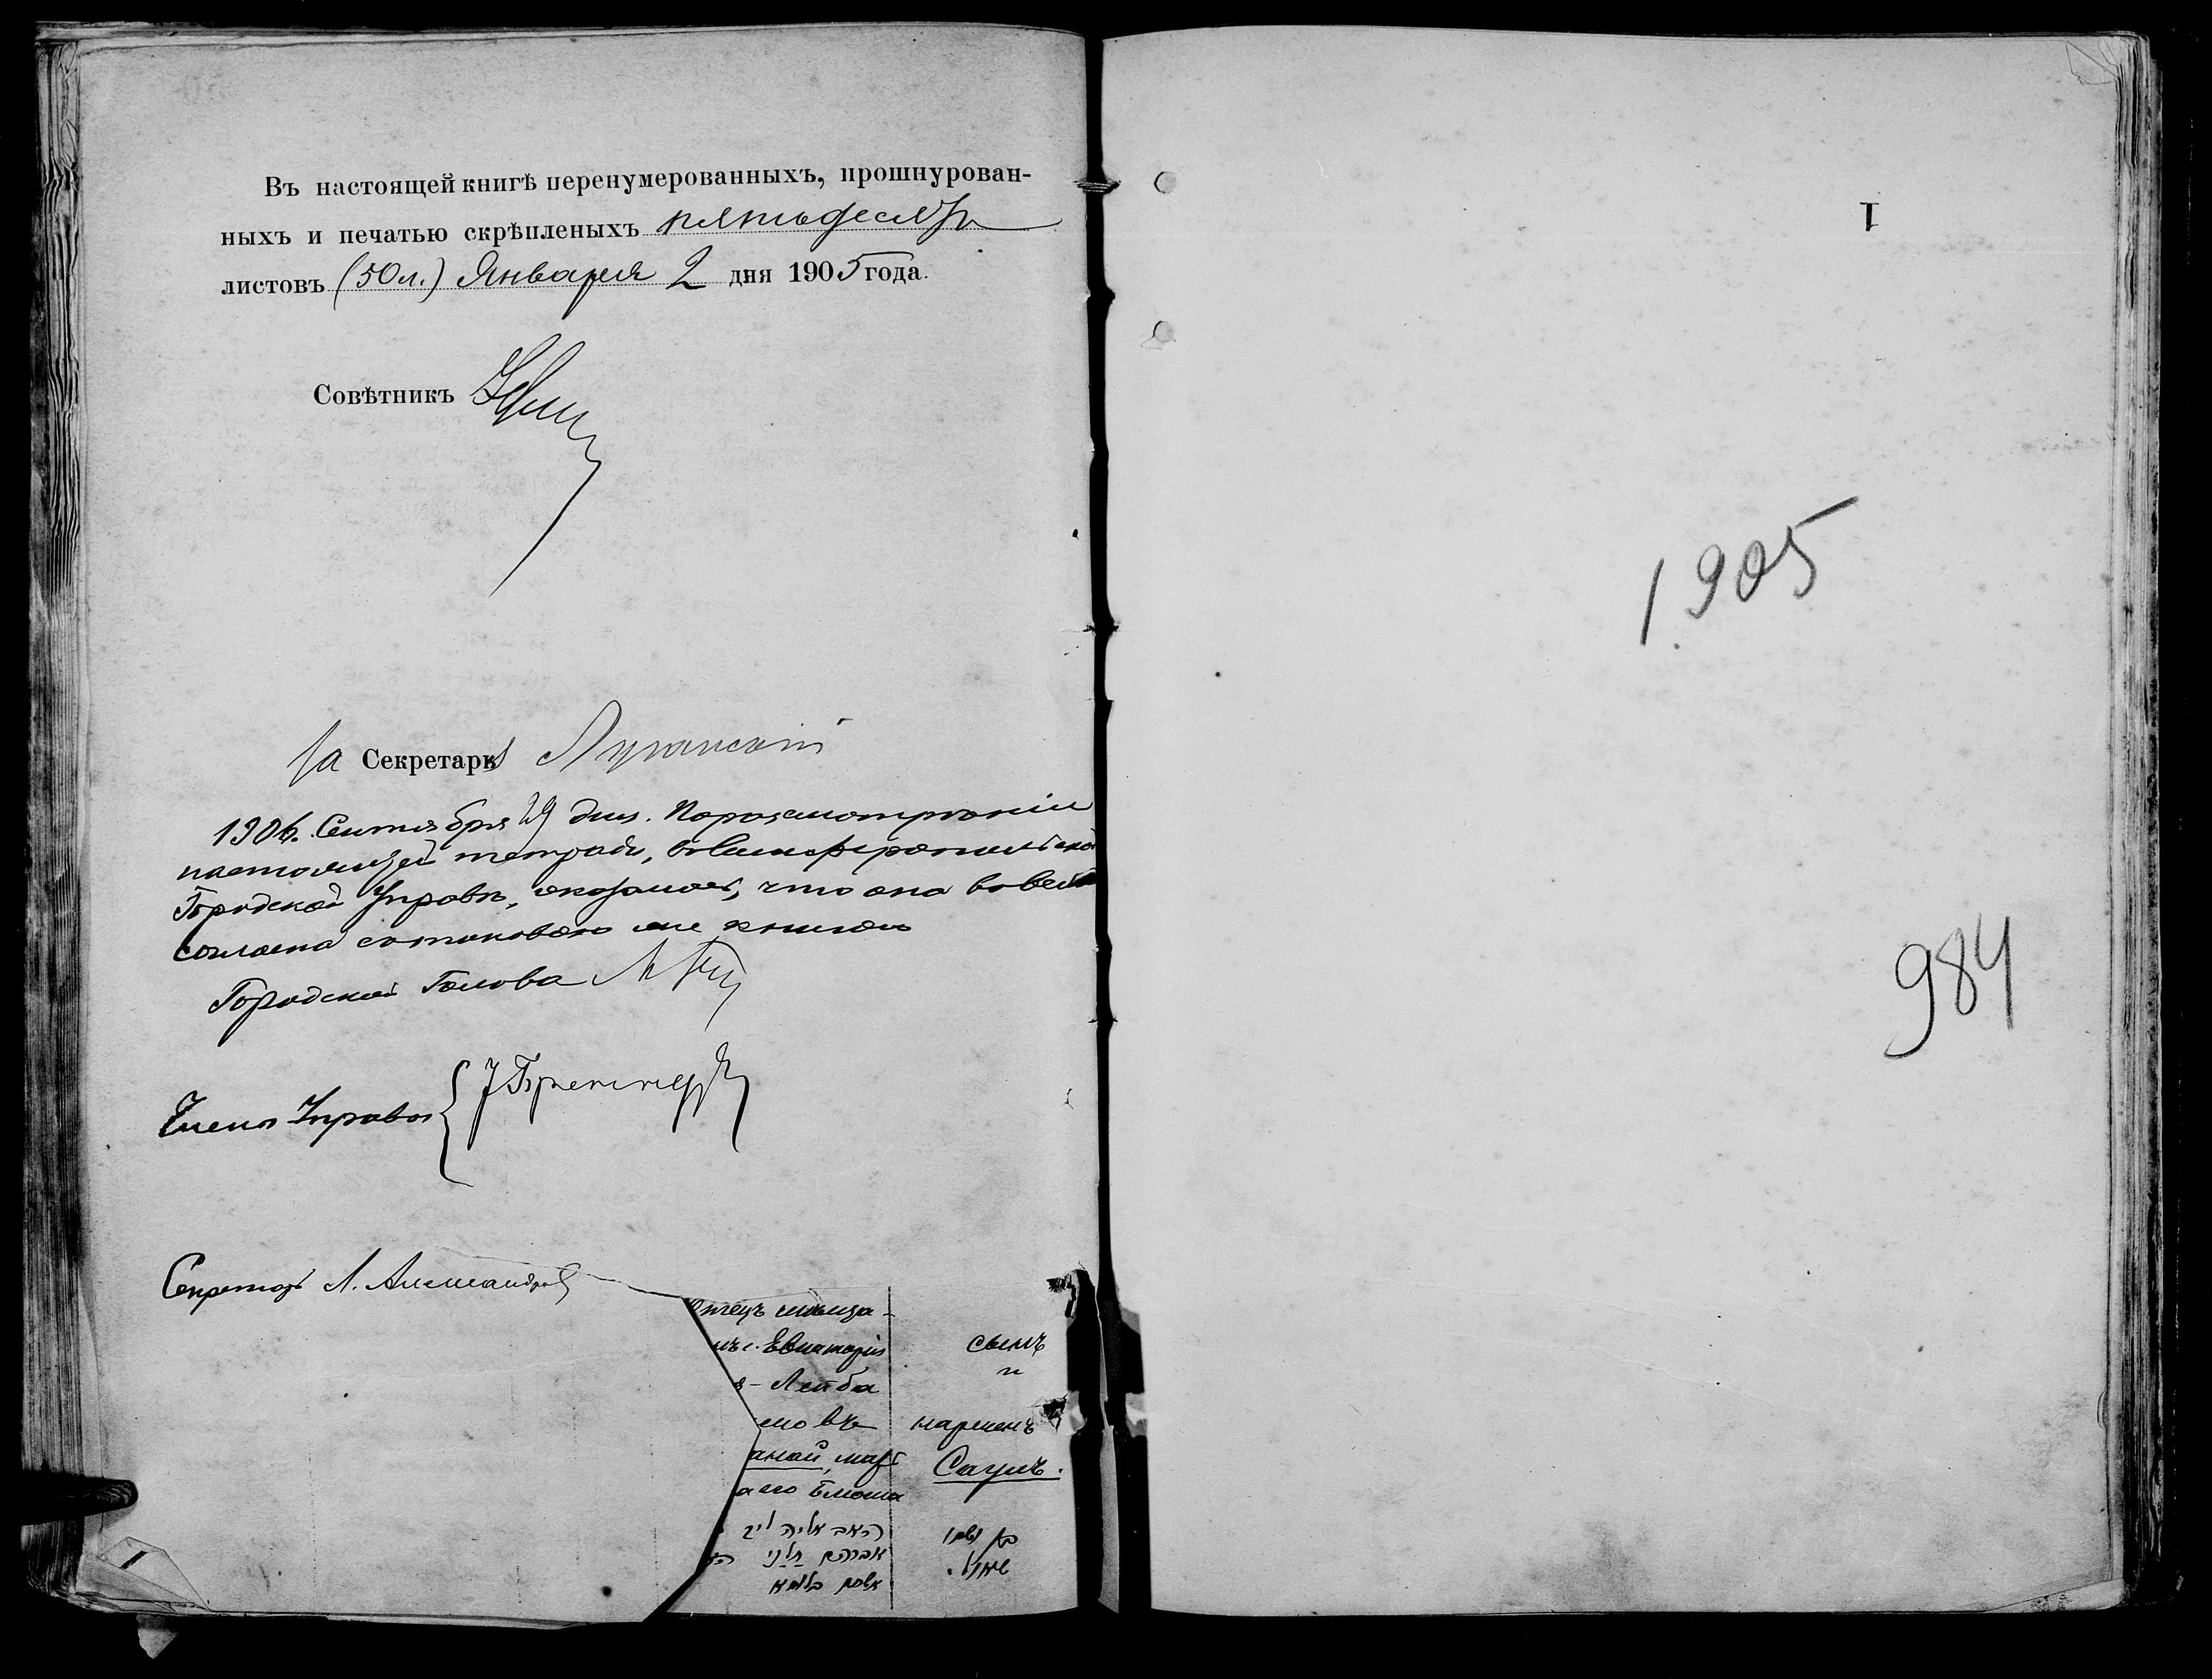 Въ настоящей книгѣ перенумерованныхъ, прошнурован-
ныхъ и печатью скрѣпленыхъ пятьдесятъ
листовъ (50 л.) Января 2 дня 1905 года.
Совѣтникъ
За Секретаря Луганскій
1906. Сентября 29 дня. По разсмотреніи
настоящей тетради, в Симферопольской
Городской Управѣ, оказалось, что она во всем
согласна с таковою же книгою
Городской Голова
Члены Управы
Секретарь Л. Александров
Отецъ мѣща-
нъ г. Евпаторіи
- Лейба
мовъ
аной, мать
а его Блюма
сынъ
и
нареченъ
Саулъ.
האב אליה ליב
אברהם
אשתו בלומא
בן ושמו
שאול.
1
I
1905
984